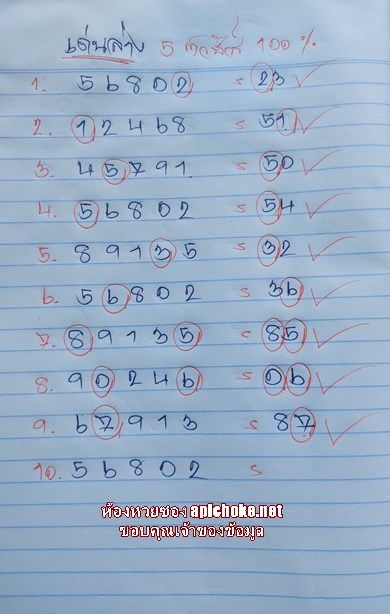 เด่นล่าง 5 ตัวสิด 100 %
1. 56802 = 23 ✓
2. 12468 = 51 ✓
3. 45791 = 50 ✓
4. 56802 = 54 ✓
5. 89135 = 32 ✓
6. 56802 = 36 ✓
7. 89135 = 85 ✓
8. 90246 = 06 ✓
9. 67913 = 87 ✓
10. 56802 =
ห้องหวยซอง apichoke.net
ขอบคุณเจ้าของข้อมูล